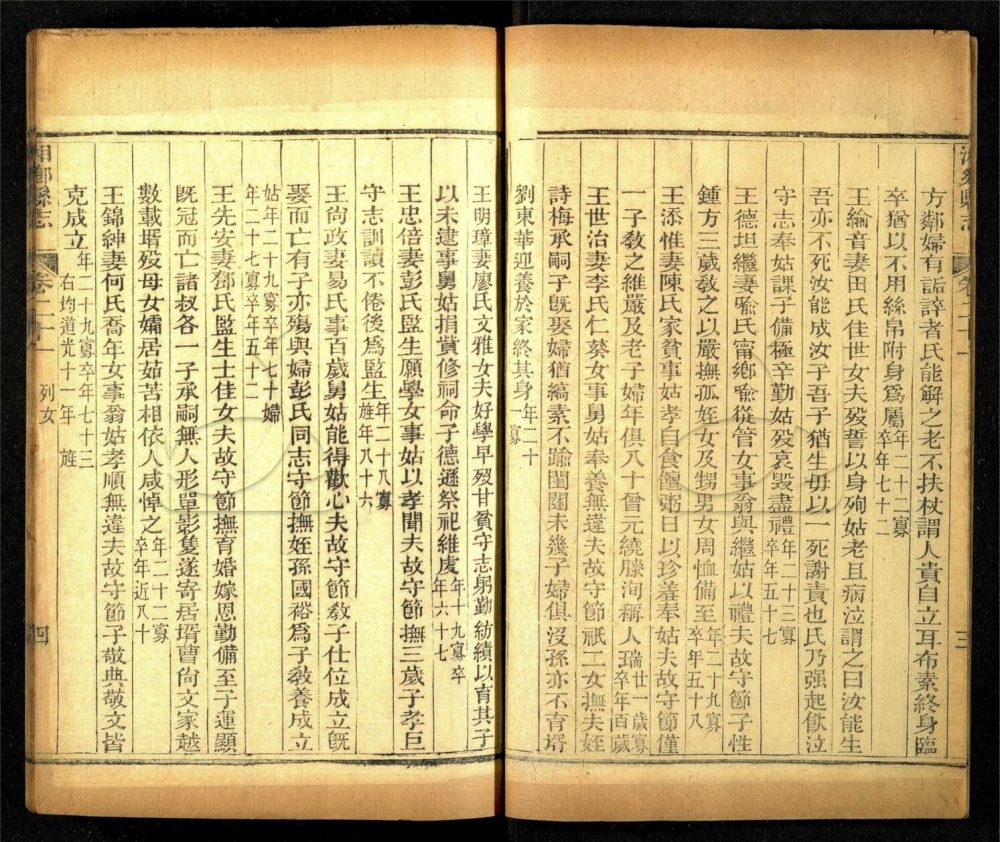 方鄰婦有詬誶者氏能解之老不扶杖謂人貴自立耳布素終身臨
卒猶以不用絲帛附身爲屬年二十二寡卒年七十二
王綸音妻田氏佳世女夫歿誓以身殉姑老且病泣謂之曰汝能生
吾亦不死汝能成汝子吾子猶生毋以一死謝責也氏乃强起飲泣
守志奉姑課子備極辛勤姑歿哀毀盡禮年二十三寡卒年五十七
王德坦繼妻喩氏甯鄉喩從管女事翁與繼姑以禮夫故守節子性
鍾方三歲敎之以嚴撫孤姪女及甥男女周恤備至年二十九寡卒年五十八
王添惟妻陳氏家貧事姑孝自食饘粥日以珍羞奉姑夫故守節僅
一子敎之維嚴及老子婦年俱八十曾元繞膝洵稱人瑞廿一歲寡卒年百歲
王世治妻李氏仁葵女事舅姑奉養無違夫故守節祇二女撫夫姪
詩梅承嗣子旣娶婦猶縞素不踰閨闥未幾子婦俱沒孫亦不育壻
劉東華迎養於家終其身年二十一寡
三
王明璋妻廖氏文雅女夫好學早歿甘貧守志躬勤紡績以育其子
以未逮事舅姑捐貲修祠命子德遜祭祀維虔年十九寡卒年六十七
王忠倍妻彭氏監生願學女事姑以孝聞夫故守節撫三歲子孝巨
守志訓讀不倦後爲監生年二十八寡旌年八十六
王尙政妻易氏事百歲舅姑能得歡心夫故守節敎子仕位成立旣
娶而亡有子亦殤與婦彭氏同志守節撫姪孫國裕爲子敎養成立
姑年二十九寡卒年七十婦年二十七寡卒年五十二
王先安妻鄧氏監生士佳女夫故守節撫育婚嫁恩勤備至子運顯
旣冠而亡諸叔各一子承嗣無人形單影隻遂寄居壻曹尙文家越
數載壻歿母女孀居茹苦相依人咸悼之年二十二寡卒年近八十
王錦紳妻何氏喬年女事翁姑孝順無違夫故守節子敬典敬文皆
克成立年二十九寡卒年七十三
右均道光十一年旌
湘鄉縣志 卷二十一 列女 四